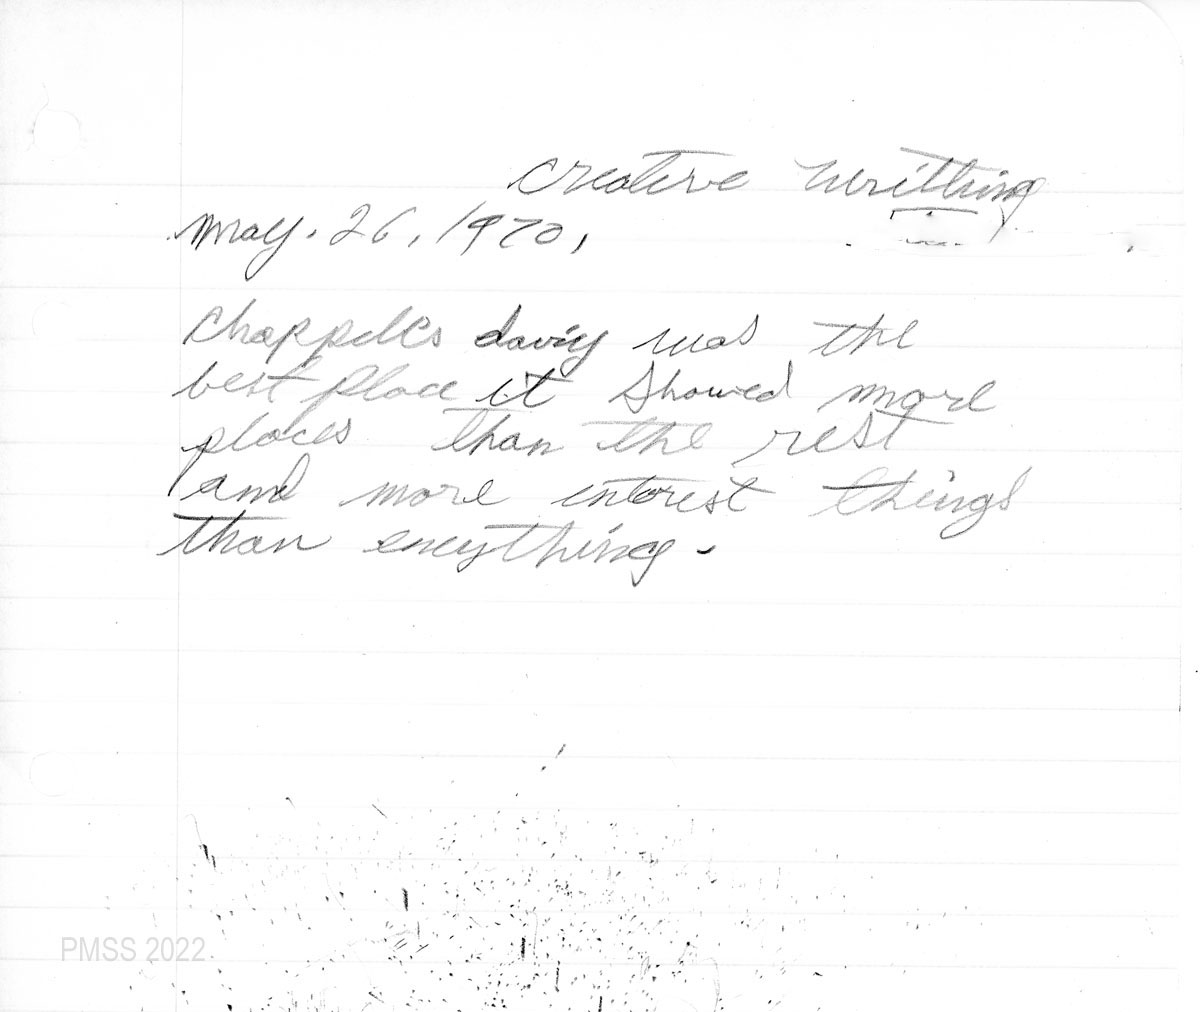 creative writthing
may. 26, 1970,
Chappells daviy was the
best place it showed more
places than the rest
and more interest things
than eneything.
PMSS 2022